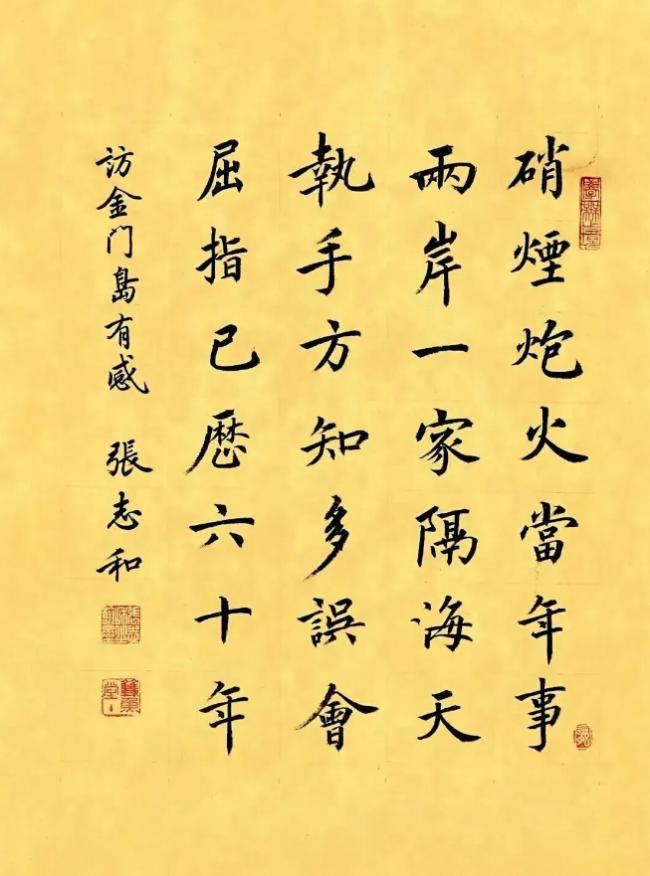 硝煙炮火當年事
兩岸一家隔海天
執手方知多誤會
屈指已歷六十年
訪金门島有感 張志和